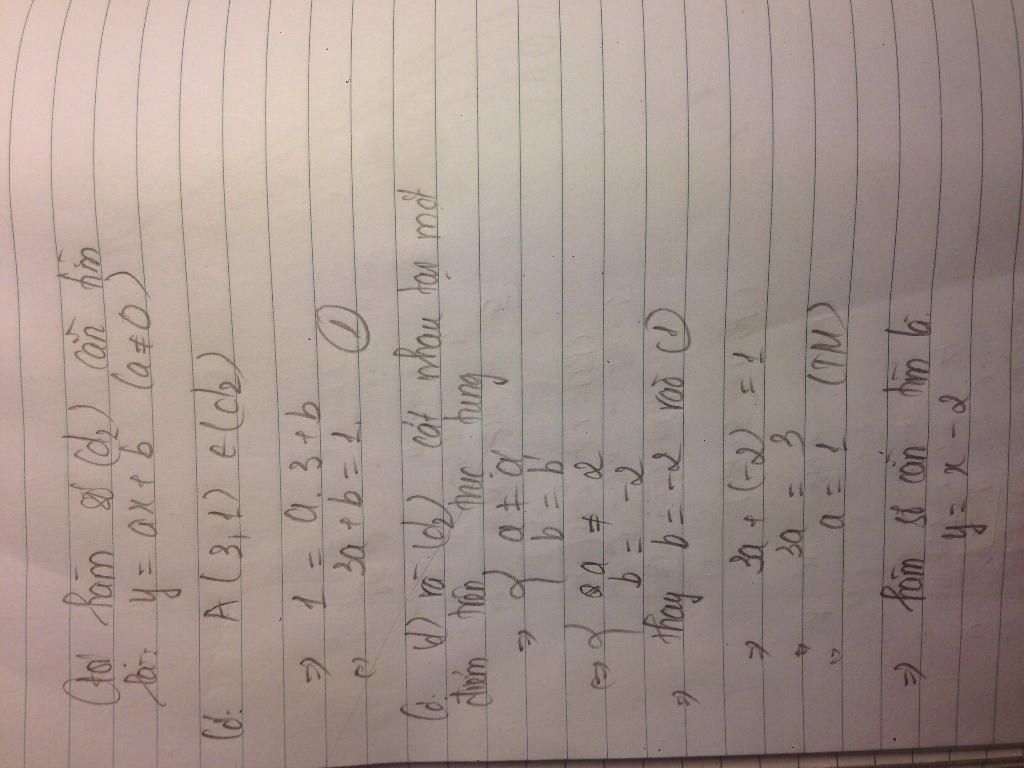 Gọi hàm số (d₂) cần tìm
là: y = ax + b (a ≠ 0)
Có: A (3,1) ∈ (d₂)
⇒ 1 = a. 3 + b
⇔ 3a + b = 1. ①
Có: (d) và (d₂) cắt nhau tại một
điểm trên trục tung
⇒ { a ≠ a'
b = b'
⇔ { a ≠ 2
b = -2
⇒ thay b = -2 vào ①
⇒ 3a + (-2) = 1
⇔ 3a = 3
⇔ a = 1 (TM)
⇒ hàm số cần tìm là
y = x - 2